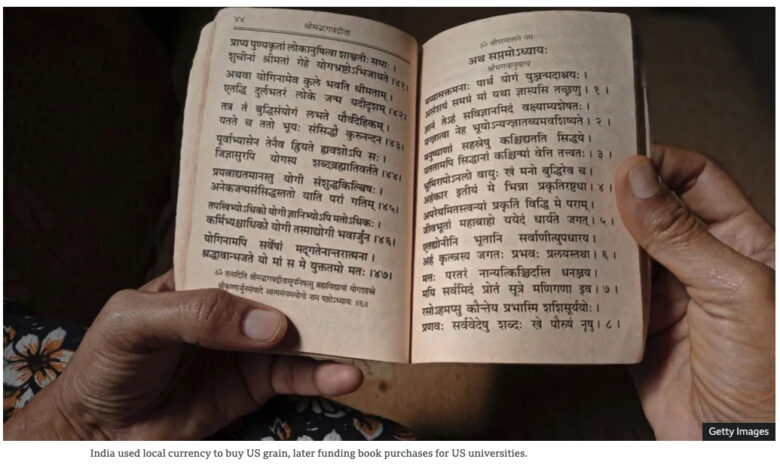 ४४ श्रीमद्भगवद्गीता
प्राप्य पुण्यकृतां लोकानुषित्वा शाश्वतीः समाः ।
शुचीनां श्रीमतां गेहे योगभ्रष्टोऽभिजायते ।४१।
अथवा योगिनामेव कुले भवति धीमताम् ।
एतद्धि दुर्लभतरं लोके जन्म यदीदृशम् ।४२।
तत्र तं बुद्धिसंयोगं लभते पौर्वदेहिकम् ।
यतते च ततो भूयः संसिद्धौ कुरुनन्दन ।४३।
पूर्वाभ्यासेन तेनैव ह्रियते ह्यवशोऽपि सः ।
जिज्ञासुरपि योगस्य शब्दब्रह्मातिवर्तते ।४४।
प्रयत्नाद्यतमानस्तु योगी संशुद्धकिल्बिषः ।
अनेकजन्मसंसिद्धस्ततो याति परां गतिम् ।४५।
तपस्विभ्योऽधिको योगी ज्ञानिभ्योऽपि मतोऽधिकः ।
कर्मिभ्यश्चाधिको योगी तस्माद्योगी भवार्जुन ।४६।
योगिनामपि सर्वेषां मद्गतेनान्तरात्मना ।
श्रद्धावान्भजते यो मां स मे युक्ततमो मतः ।४७।
ॐ तत्सदिति श्रीमद्भगवद्गीतासूपनिषत्सु ब्रह्मविद्यायां योगशास्त्रे
श्रीकृष्णार्जुनसंवादे आत्मसंयमयोगो नाम षष्ठोऽध्यायः ॥६॥
ॐ श्रीपरमात्मने नमः
अथ सप्तमोऽध्यायः
श्रीभगवानुवाच
मय्यासक्तमनाः पार्थ योगं युञ्जन्मदाश्रयः ।
असंशयं समग्रं मां यथा ज्ञास्यसि तच्छृणु । १ ।
ज्ञानं तेऽहं सविज्ञानमिदं वक्ष्याम्यशेषतः ।
यज्ज्ञात्वा नेह भूयोऽन्यज्ज्ञातव्यमवशिष्यते । २ ।
मनुष्याणां सहस्रेषु कश्चिद्यतति सिद्धये ।
यततामपि सिद्धानां कश्चिन्मां वेत्ति तत्त्वतः । ३ ।
भूमिरापोऽनलो वायुः खं मनो बुद्धिरेव च ।
अहंकार इतीयं मे भिन्ना प्रकृतिरष्टधा । ४ ।
अपरेयमितस्त्वन्यां प्रकृतिं विद्धि मे पराम् ।
जीवभूतां महाबाहो ययेदं धार्यते जगत् । ५ ।
एतद्योनीनि भूतानि सर्वाणीत्युपधारय ।
अहं कृत्स्नस्य जगतः प्रभवः प्रलयस्तथा । ६ ।
मत्तः परतरं नान्यत्किञ्चिदस्ति धनञ्जय ।
मयि सर्वमिदं प्रोतं सूत्रे मणिगणा इव । ७ ।
रसोऽहमप्सु कौन्तेय प्रभास्मि शशिसूर्ययोः ।
प्रणवः सर्ववेदेषु शब्दः खे पौरुषं नृषु । ८ ।
Getty Images
India used local currency to buy US grain, later funding book purchases for US universities.